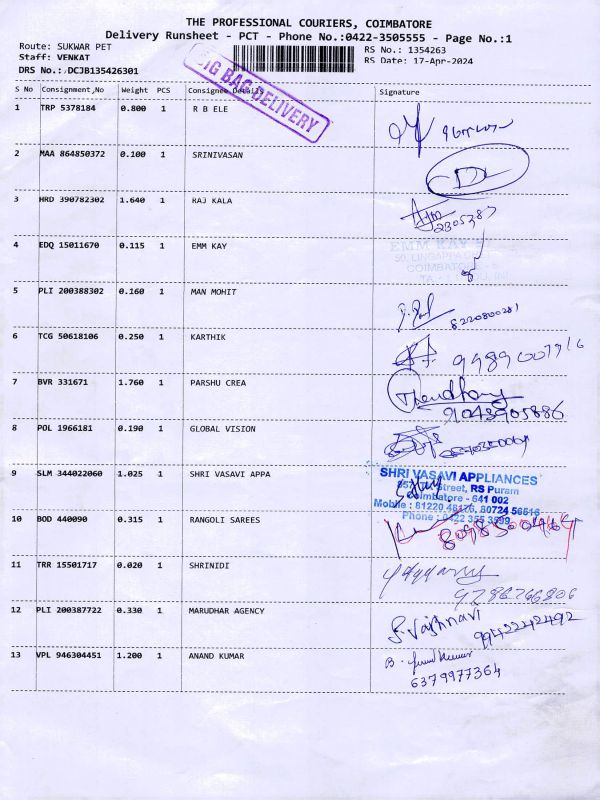 THE PROFESSIONAL COURIERS, COIMBATORE
Delivery Runsheet - PCT - Phone No.:0422-3505555 - Page No.:1
Route: SUKWAR PET
RS No.: 1354263
Staff: VENKAT
RS Date: 17-Apr-2024
DRS No.: DCJB135426301
BIG BAG DELIVERY
S No Consignment,No Weight PCS Consignee Details Signature
1 TRP 5378184 0.800 1 R B ELE
2 MAA 864850372 0.100 1 SRINIVASAN
3 HRD 390782302 1.640 1 RAJ KALA
2305387
4 EDQ 15011670 0.115 1 EMM KAY
EMM KAY
COIMBATORE
5 PLI 200388302 0.160 1 MAN MOHIT
8220800281
6 TCG 50618106 0.250 1 KARTHIK
7 BVR 331671 1.760 1 PARSHU CREA
9043905886
8 POL 1966181 0.190 1 GLOBAL VISION
9 SLM 344022060 1.025 1 SHRI VASAVI APPA
SHRI VASAVI APPLIANCES
Street, RS Puram
Coimbatore - 641 002
Mobile : 81220 48176, 80724 56516
Phone : 0422 355 3599
10 BOD 440090 0.315 1 RANGOLI SAREES
11 TRR 15501717 0.020 1 SHRINIDI
9786766806
12 PLI 200387722 0.330 1 MARUDHAR AGENCY
S. Vaishnavi
9942242492
13 VPL 946304451 1.200 1 ANAND KUMAR
6379977364